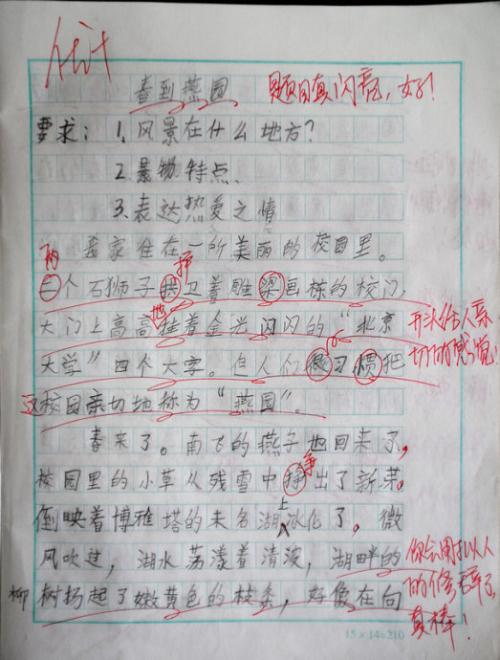 估计
春到燕园 题目真闪亮，好！
要求：1、风景在什么地方？
2、景物特点、
3、表达热爱之情
我家住在一所美丽的校园里。
两 护
二个石狮子拱卫着雕梁画栋的校门，
大门上高高地挂着金光闪闪的“北京 开头给人亲
大学”四个大字。但人们做习惯把 切的感觉！
这校园亲切地称为“燕园”。
春来了。南飞的燕子也回来了，
校园里的小草从残雪中挣出了新芽。
倒映着博雅塔的未名湖上冰化了。微
风吹过，湖水荡漾着清波，湖畔的 你会用拟人
柳树扬起了嫩黄色的枝条，好像在向 的修辞了
真棒！
15×14=210